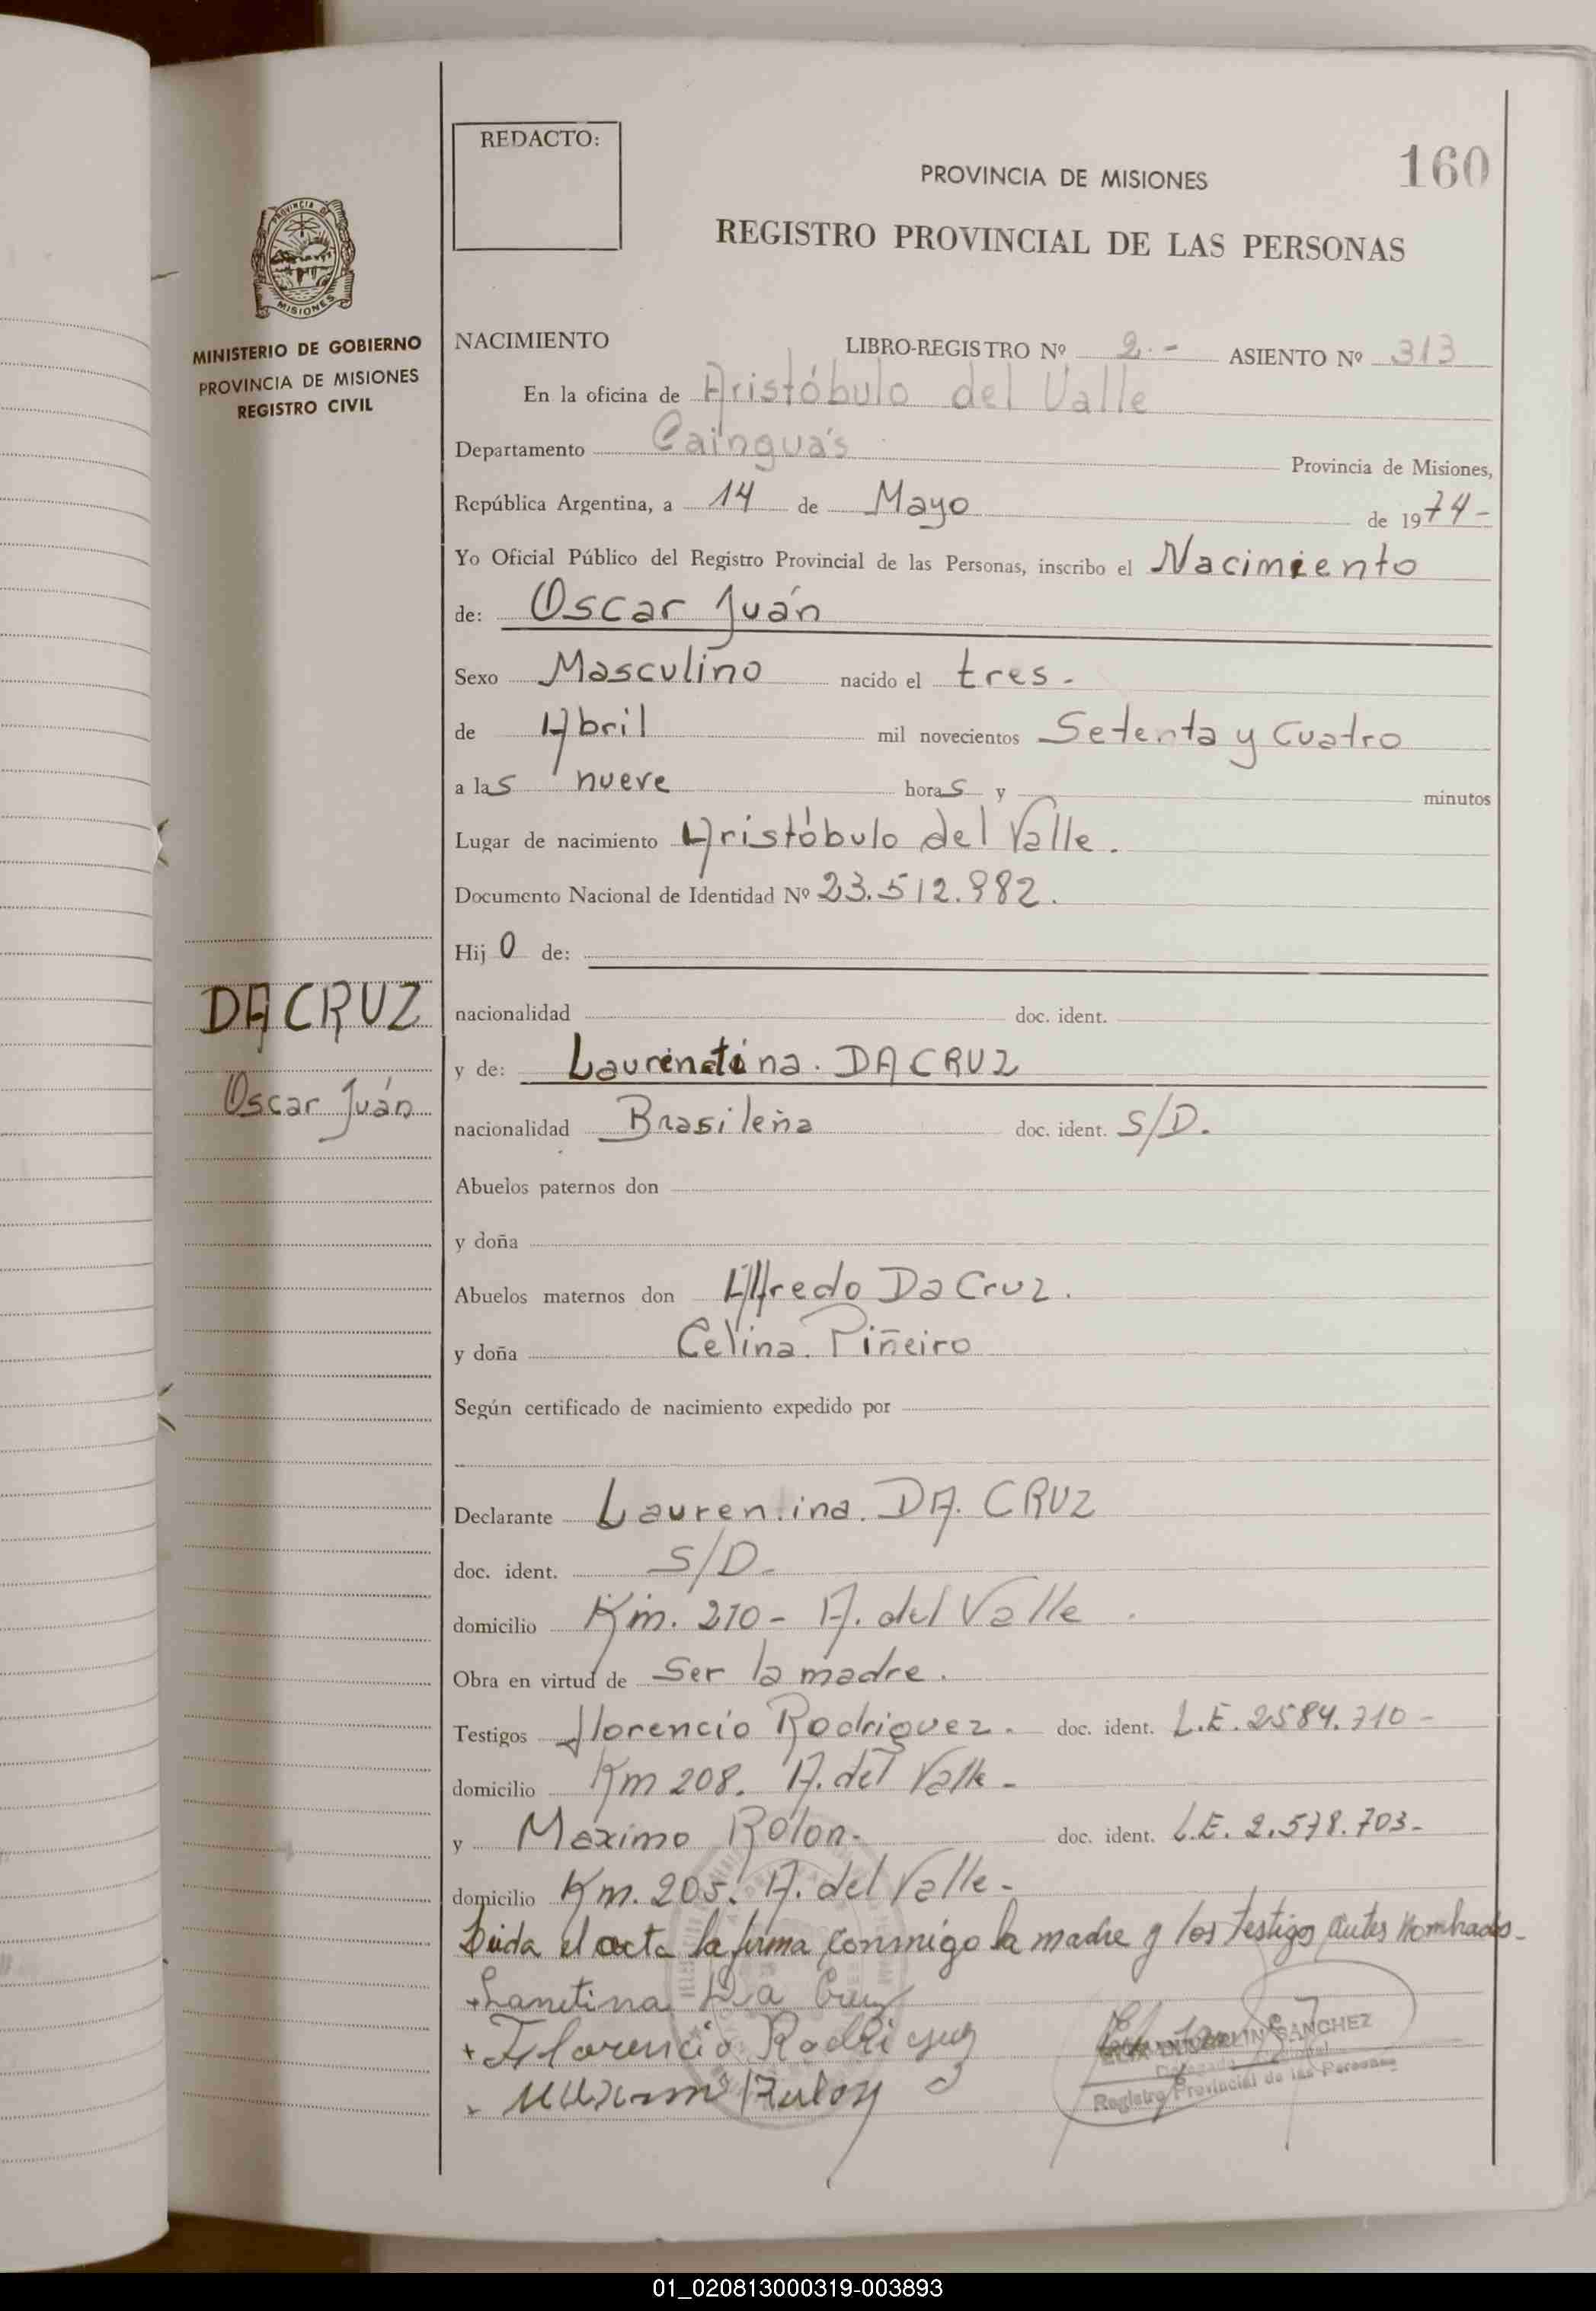 REDACTO:
PROVINCIA DE MISIONES
160
REGISTRO PROVINCIAL DE LAS PERSONAS
PROVINCIA DE
MISIONES
MINISTERIO DE GOBIERNO
PROVINCIA DE MISIONES
REGISTRO CIVIL
NACIMIENTO LIBRO-REGISTRO Nº 2.- ASIENTO Nº 313
En la oficina de Aristóbulo del Valle
Departamento Cainguás Provincia de Misiones,
República Argentina, a 14 de Mayo de 1974-
Yo Oficial Público del Registro Provincial de las Personas, inscribo el Nacimiento
de: Oscar Juán
Sexo Masculino nacido el tres.-
de Abril mil novecientos Setenta y Cuatro
a las nueve horas y minutos
Lugar de nacimiento Aristóbulo del Valle.
Documento Nacional de Identidad Nº 23.512.982.
Hijo de:
DA CRUZ
nacionalidad doc. ident.
y de: Laurentina. DA CRUZ
Oscar Juán
nacionalidad Brasileña doc. ident. S/D.
Abuelos paternos don
y doña
Abuelos maternos don Alfredo Da Cruz.
y doña Celina. Piñeiro
Según certificado de nacimiento expedido por
Declarante Laurentina. DA. CRUZ
doc. ident. S/D.
domicilio Km. 210- A. del Valle.
Obra en virtud de Ser la madre.
Testigos Florencio Rodriguez. doc. ident. L.E. 2584.710-
domicilio Km 208. A. del Valle-
y Máximo Rolon. doc. ident. L.E. 2.578.703-
domicilio Km. 205. A. del Valle-
Leida el acta la firma conmigo la madre y los testigos antes nombrados-
Da Cruz
Florencio Rodriguez
SANCHEZ
Registro Provincial de las Personas
01_020813000319-003893